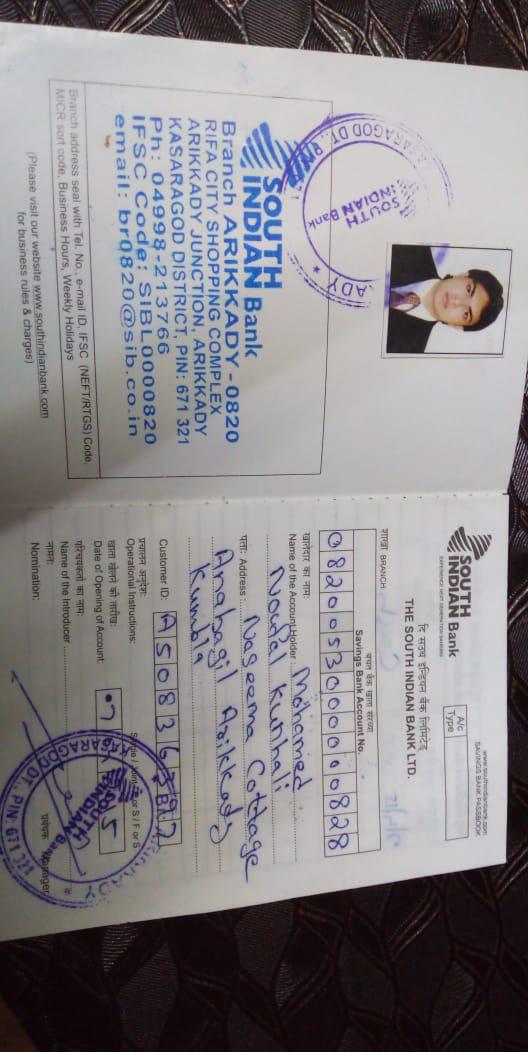 SOUTH
INDIAN Bank
Branch ARIKKADY-0820
RIFA CITY SHOPPING COMPLEX
ARIKKADY JUNCTION, ARIKKADY
KASARAGOD DISTRICT, PIN: 671 321
Ph: 04998-213766
IFSC Code: SIBL0000820
email: br0820@sib.co.in
Branch address seal with Tel. No., e-mail ID, IFSC (NEFT/RTGS) Code,
MICR sort code, Business Hours, Weekly Holidays
(Please visit our website www.southindianbank.com
for business rules & charges)
SOUTH
INDIAN Bank
www.southindianbank.com
SAVINGS BANK PASSBOOK
SOUTH
INDIAN Bank
EXPERIENCE NEXT GENERATION BANKING
A/c
Type
दि साउथ इन्डियन बैंक लिमिटेड
THE SOUTH INDIAN BANK LTD.
शाखा BRANCH:
बचत बैंक खाता संख्या
Savings Bank Account No.
0820053000000828
खातेदार का नाम:
Name of the Account Holder: Mohamed
Kunhali
पता: Address: Naseema Cottage
Arikkady
Kumbla
Customer ID:
प्रचालन अनुदेश:
Operational Instructions:
खाता खोलने की तारीख:
Date of Opening of Account:
परिचयकर्ता का नाम:
Name of the Introducer
नामन:
Nomination:
प्रबंधक Manager
SOUTH
INDIAN
Bank